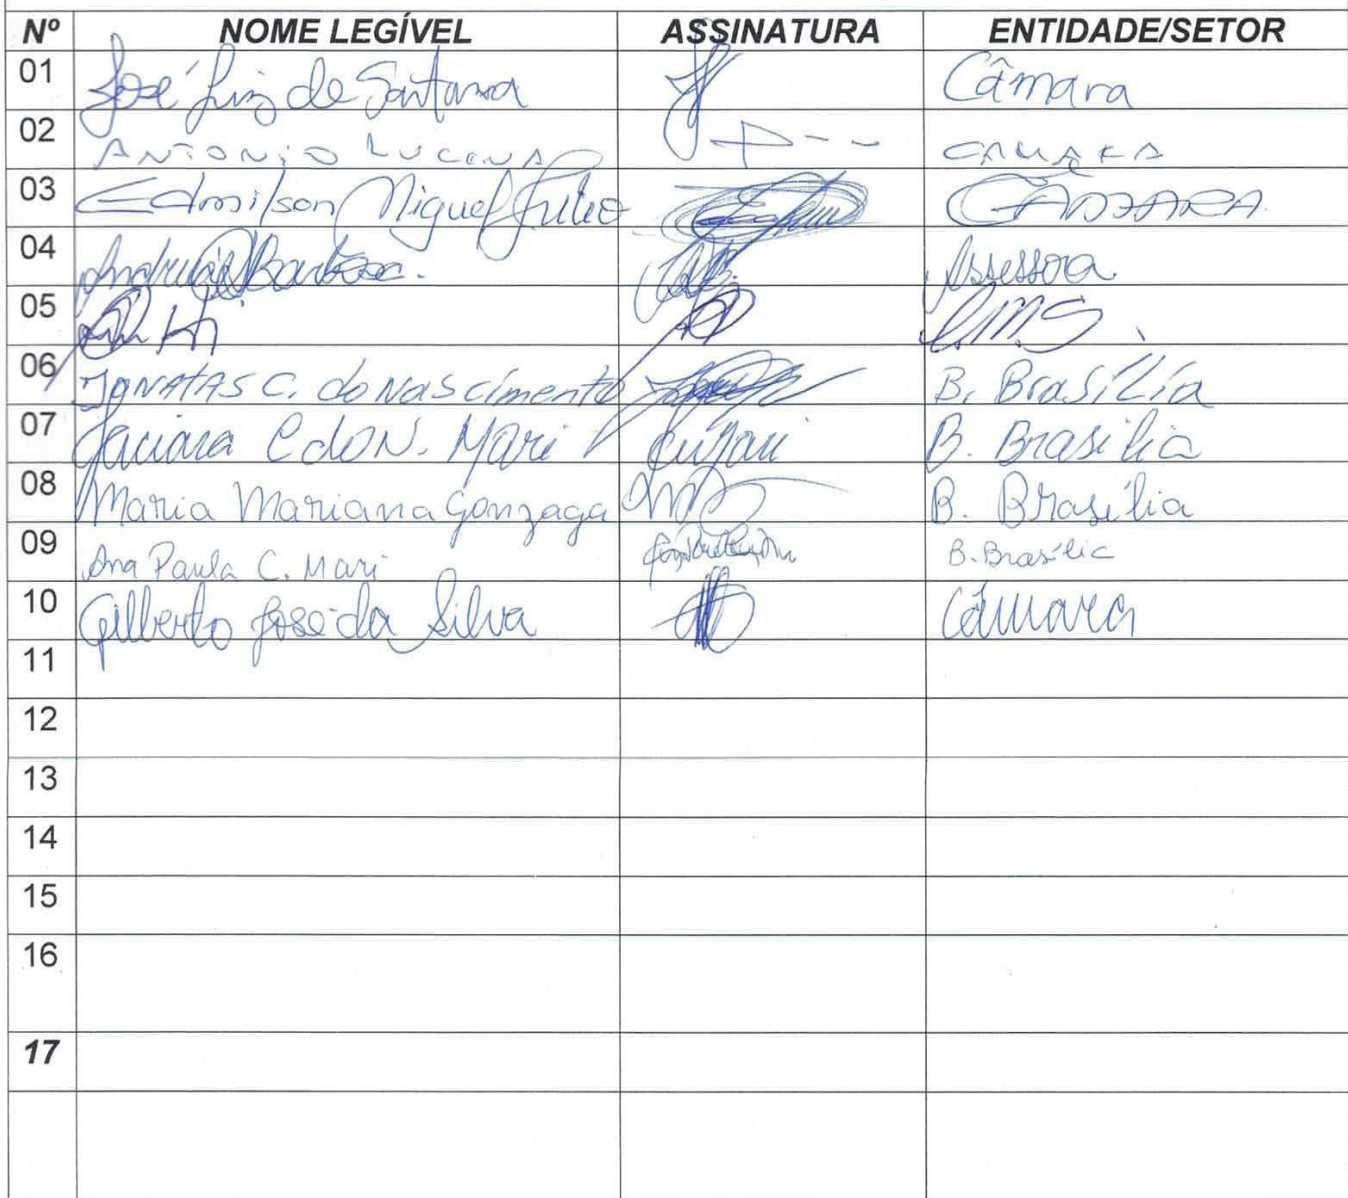 Nº NOME LEGÍVEL ASSINATURA ENTIDADE/SETOR
01 José Luiz de Santana Câmara
02 ANTONIO LUCENA CAMARA
03 Edmilson Miguel CÂMARA
04 Barbosa. Assessora
05
06 JONATAS C. do Nascimento B. Brasília
07 Jaciara C do N. Mari B. Brasilia
08 Maria Mariana Gonzaga B. Brasília
09 Ana Paula C. Mari B. Brasília
10 Gilberto José da Silva Câmara
11
12
13
14
15
16
17